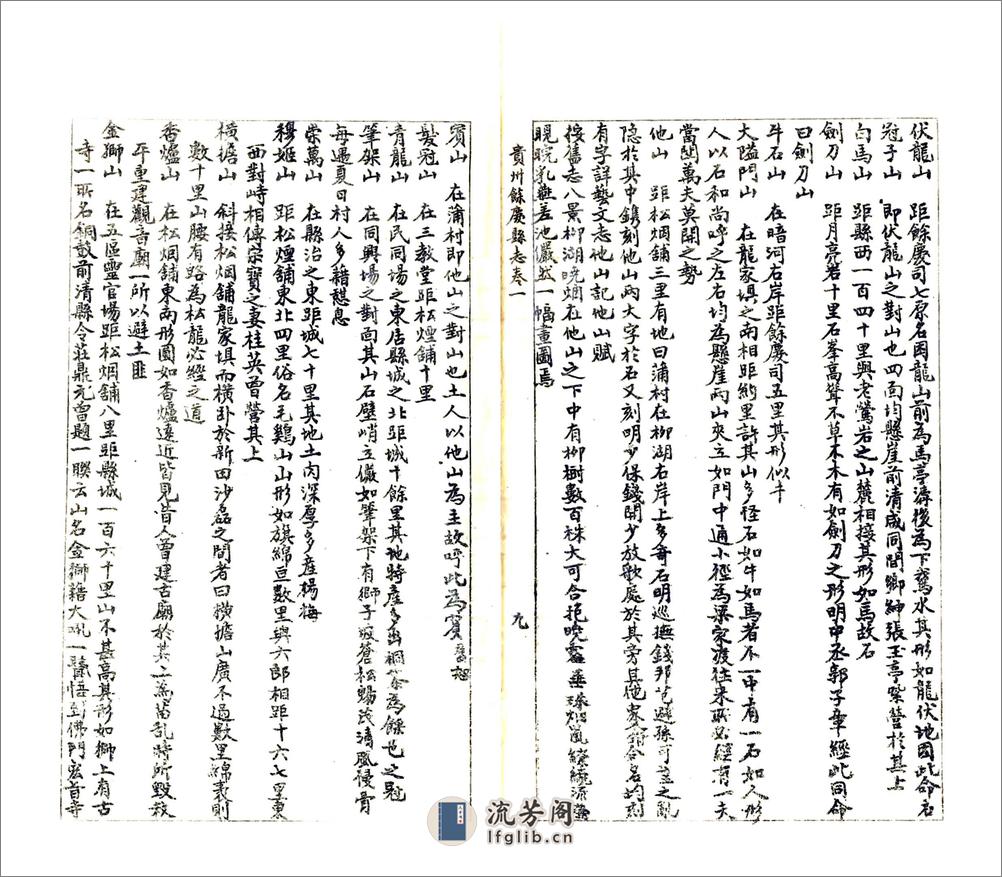 伏龍山　距餘慶司七原名困龍山前為馬亭濤後為下鶩水其形如龍伏地因此命名
冠子山　即伏龍山之對山也四面均懸崖前清咸同間鄉紳張玉亭堅營於其上
白馬山　距縣西一百四十里與老鶯岩之山麓相接其形如馬故名
劍刀山　距月亮岩十里石峯高聳不草木木有如劍刀之形明中丞郭子章經此同命
曰劍刀山
斗石山　在暗河右岸距餘慶司五里其形似斗
大隘門山　在龍家垻之南相距約里許其山多怪石如牛如馬者不一中有一石如人形
人以石和尚呼之左右均為懸崖兩山夾立如門中通小徑為梁家渡往來所必經有一夫
當関萬夫莫開之勢
他山　距松烟舖三里有地曰蒲村在柳湖右岸上多奇石明巡撫錢邦芑避孫可望之亂
隐於其中鐫刻他山兩大字於石又刻明少保錢開少放歌處於其旁其他峯命名均刻
有字詳藝文志他山記他山賦
按舊志八景柳湖晓烟在他山之下中有柳樹數百株大可合抱晚露垂珠烟嵐繚繞流鶯
睍睆乳燕差池儼然一幅畫圖焉
貴州餘慶縣志卷一
九
賓山　在蒲村即他山之對山也土人以他山為主故呼此為賓
髮冠山　在三教堂距松煙舖十里
青龍山　在民同場之東居縣城之北距城十餘里其地特產多為餘也之冠
筆架山　在同興場之對面其山石壁峭立儼如筆架下有獅子坡蒼松蜴茂清風侵骨
每遇夏日村人多藉憇息
崇萬山　在縣治之東距城七十里其地土肉深厚多産楊梅
穆姬山　距松煙舖東北四里俗名毛鷄山山形如旗綿亘數里與六郎相距十六七里東
西對峙相傳宗寶之妻桂英曾營其上
橫擔山　斜接松烟舖龍家垻而橫卧於新田沙磊之間者曰橫擔山廣不過數里綿袤則
數十里山腰有路為松龍必經之道
香爐山　在松烟舖東南形圓如香爐遠近皆見昔人曾建古廟於其上為苗乱時所毀玆
平重建觀音廟一所以避土匪
金獅山　在五區靈官場距松烟舖八里距縣城一百六十里山不甚高其形如獅上有古
寺一所名銅鼓前清縣令莊鼎元曾題一聯云山名金獅藉大吼一聲悟到佛門宏旨寺
流芳阁
lfglib.cn